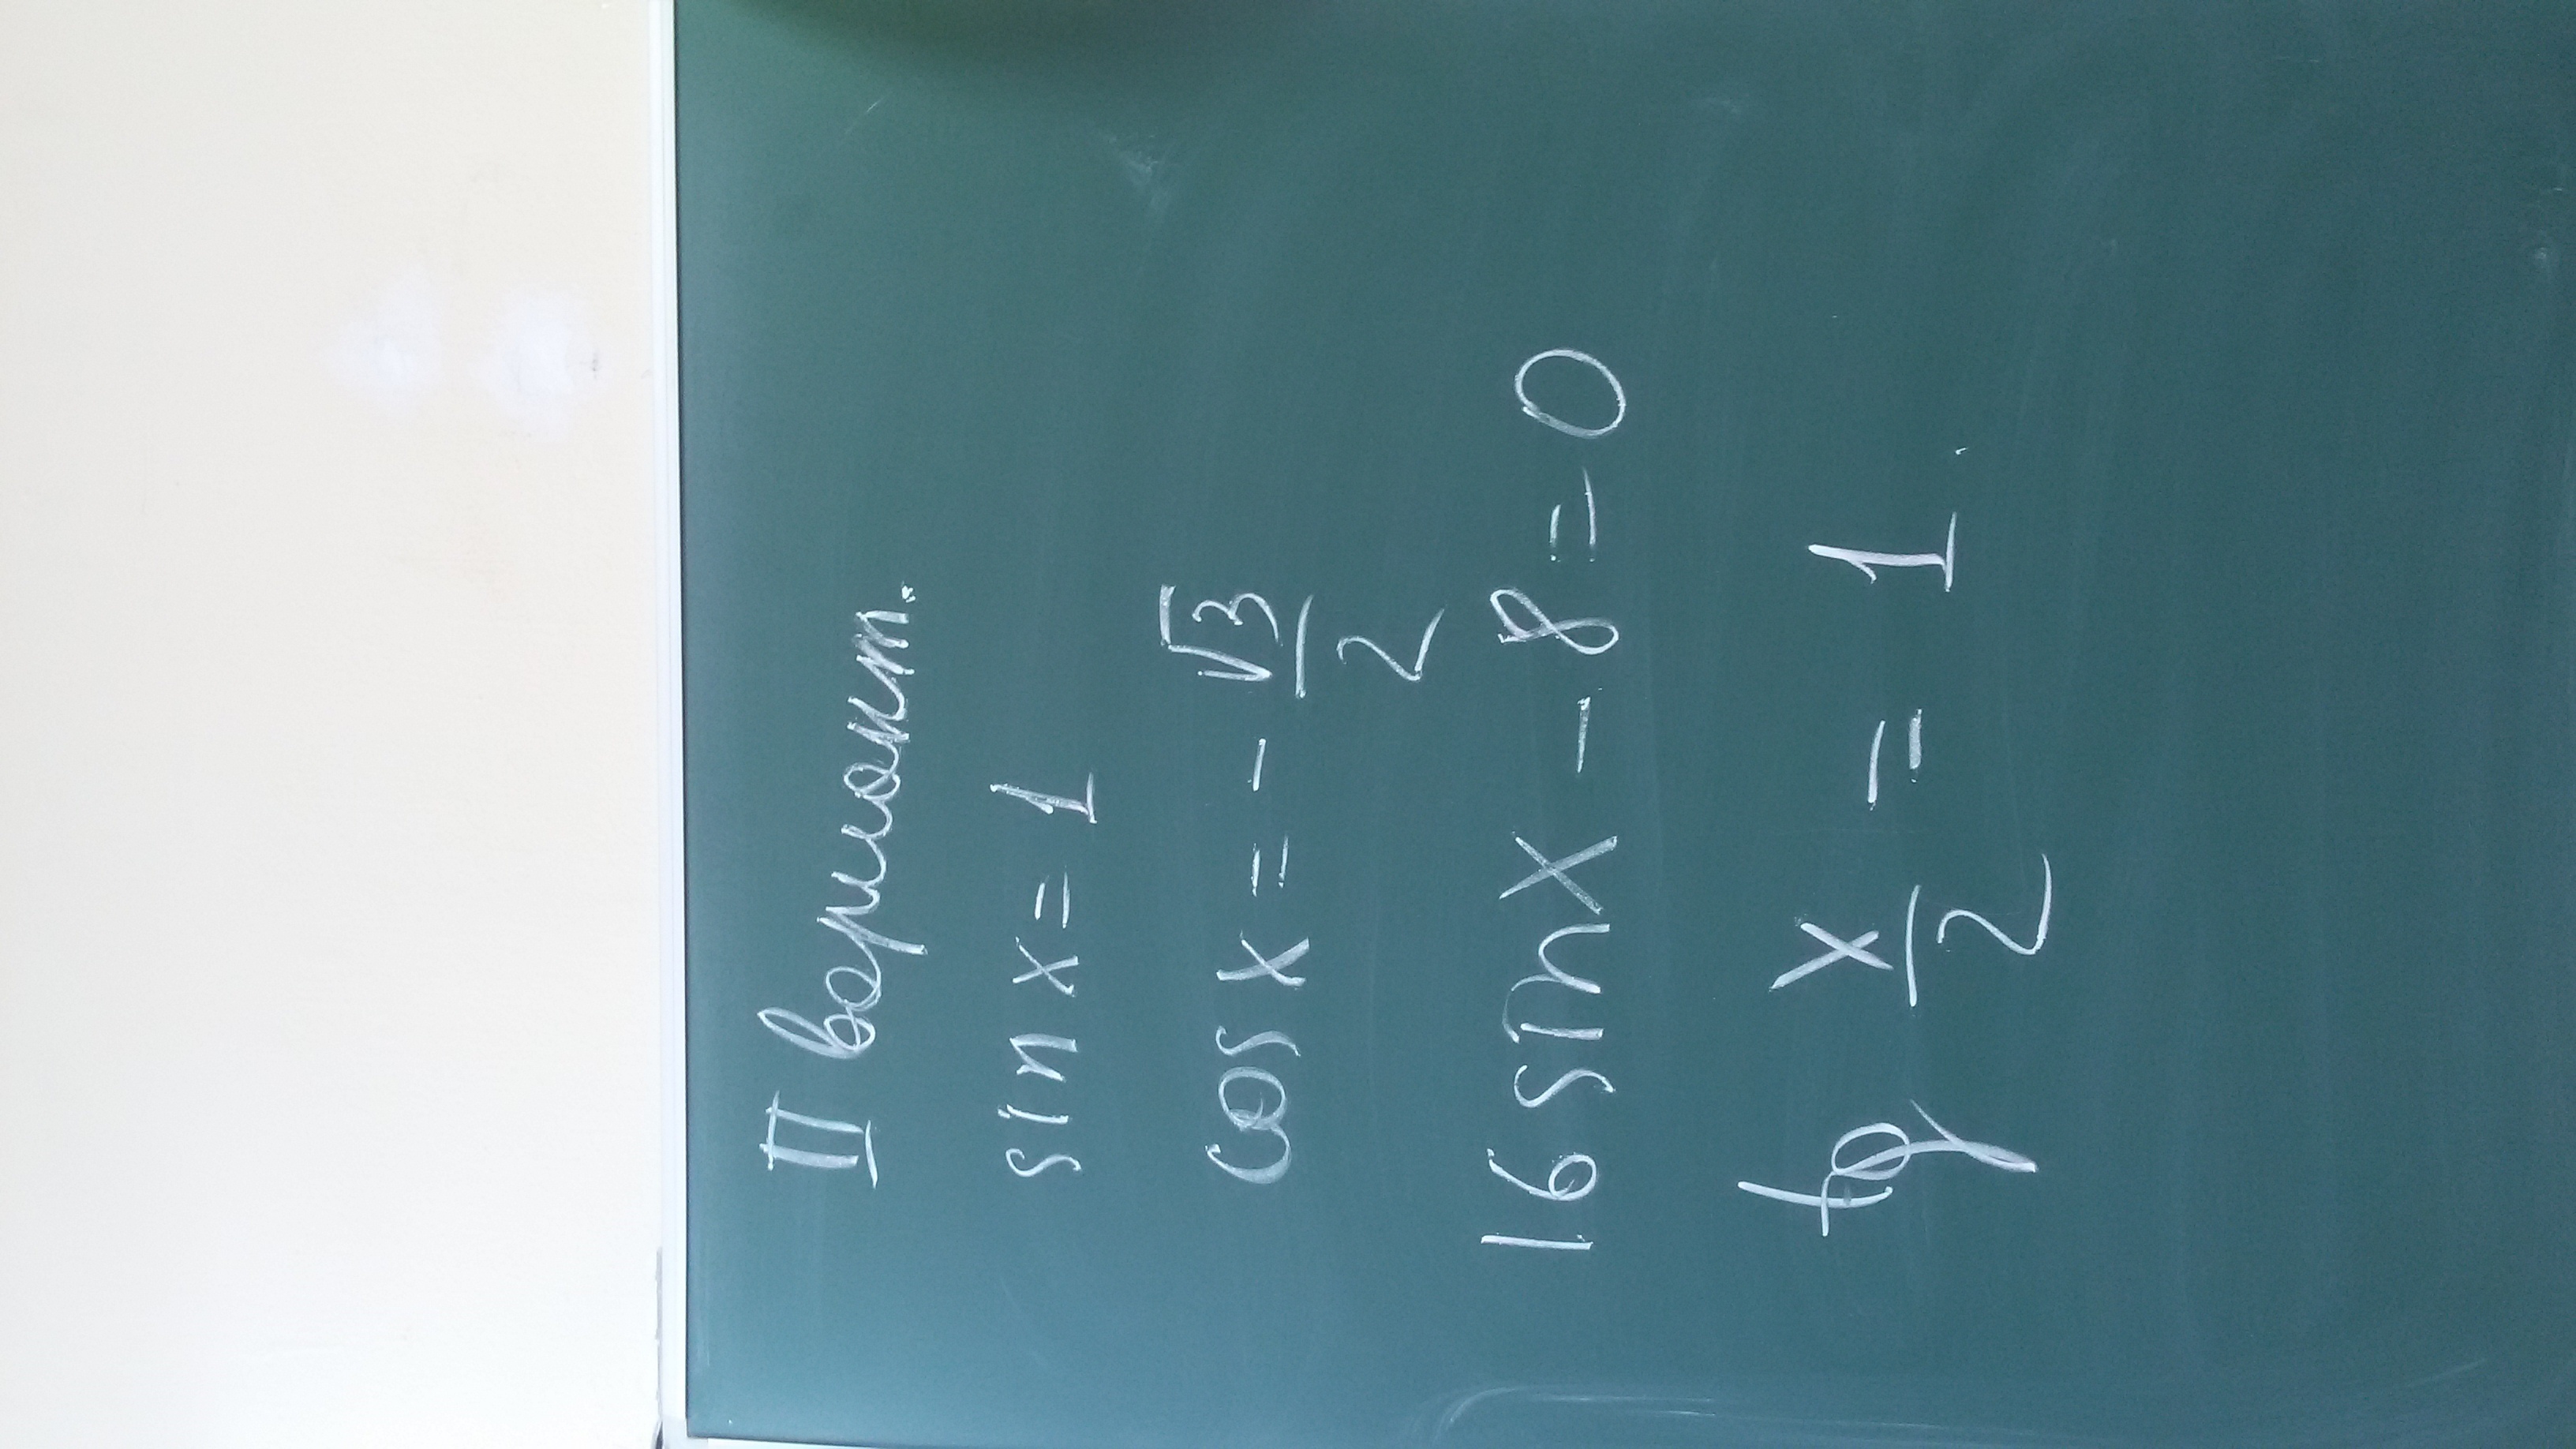 II вариант.
sin x = 1
cos x = - √3/2
16 sin x - 8 = 0
tg x/2 = 1.